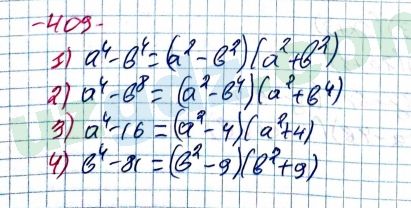 -409-
1) a⁴-b⁴=(a²-b²)(a²+b²)
2) a⁴-b⁸=(a²-b⁴)(a²+b⁴)
3) a⁴-16=(a²-4)(a²+4)
4) b⁴-81=(b²-9)(b²+9)